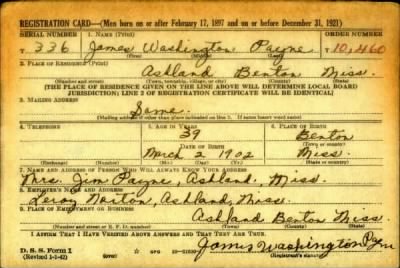 REGISTRATION CARD—(Men born on or after February 17, 1897 and on or before December 31, 1921)
SERIAL NUMBER 1. NAME (Print) ORDER NUMBER
T 336 James Washington Payne T 10,460
(First) (Middle) (Last)
2. PLACE OF RESIDENCE (Print)
Ashland Benton Miss.
(Number and street) (Town, township, village, or city) (County) (State)
(THE PLACE OF RESIDENCE GIVEN ON THE LINE ABOVE WILL DETERMINE LOCAL BOARD
JURISDICTION; LINE 2 OF REGISTRATION CERTIFICATE WILL BE IDENTICAL)
3. MAILING ADDRESS
Same.
(Mailing address if other than place indicated on line 2. If same insert word same)
4. TELEPHONE 5. AGE IN YEARS 6. PLACE OF BIRTH
39 Benton
DATE OF BIRTH (Town or county)
March 2 1902 Miss.
(Mo.) (Day) (Yr.) (State or country)
7. NAME AND ADDRESS OF PERSON WHO WILL ALWAYS KNOW YOUR ADDRESS
Mrs. Jim Payne, Ashland, Miss.
8. EMPLOYER'S NAME AND ADDRESS
Leroy Norton, Ashland, Miss.
9. PLACE OF EMPLOYMENT OR BUSINESS
Ashland Benton Miss.
(Number and street or R. F. D. number) (Town) (County) (State)
I AFFIRM THAT I HAVE VERIFIED ABOVE ANSWERS AND THAT THEY ARE TRUE.
D. S. S. Form 1 James Washington Payne
(Revised 1-1-42) (over) (Registrant's signature)